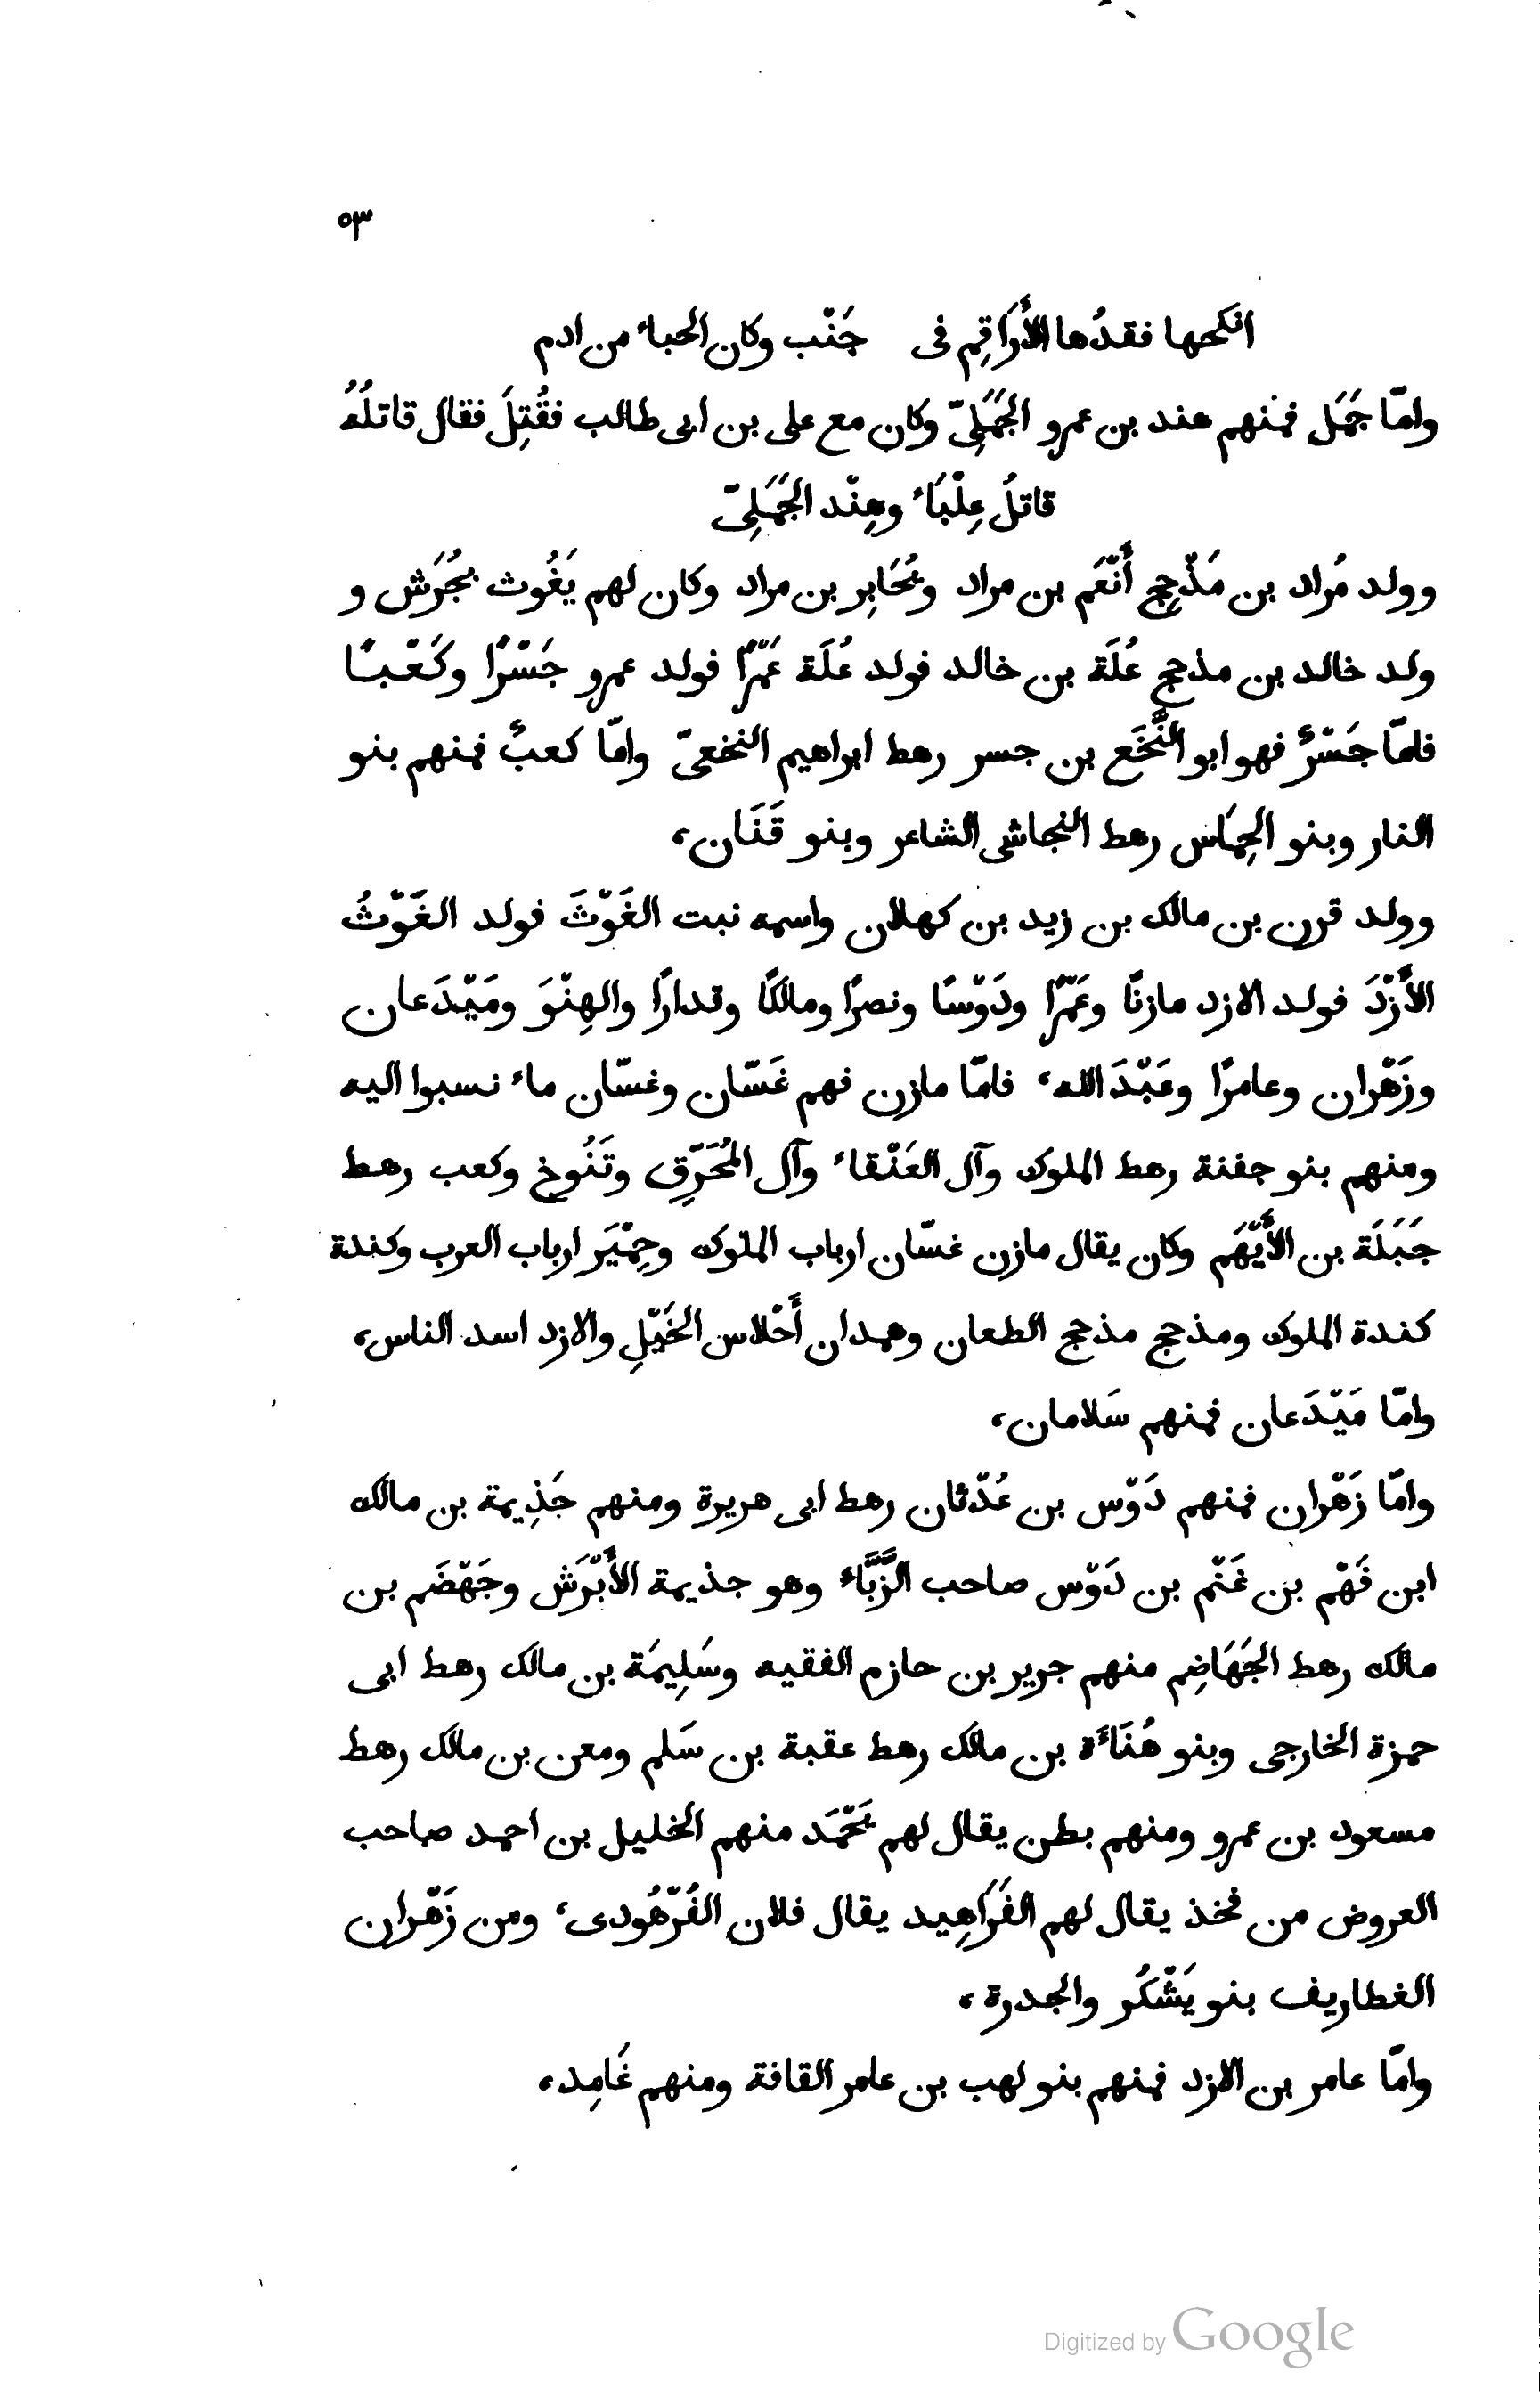 ٥٣
انكحها فقدُها الأَرَاقِم فى جَنْب وكان الحباء من ادم
وامّا جَمَل فمنهم هند بن عمرو الجَمَلِىّ وكان مع على بن ابى طالب فقُتِلَ فقال قاتلُهُ
قاتلُ عِلْبَاءَ وهِنْد الجَمَلِىّ
وولد مُراد بن مَذْحِج أَنْعَم بن مراد ويُحَابِر بن مراد وكان لهم يَغُوث بجُرَش و
ولد خالد بن مذحج عُلَة بن خالد فولد عُلَة عَمْرًا فولد عمرو جَسْرًا وكَعْبًا
فامّا جَسْرٌ فهو ابو النَّخَع بن جسر رهط ابراهيم النخعىّ وامّا كعبٌ فمنهم بنو
النار وبنو الحِمَاس رهط النجاشى الشاعر وبنو قَنَان،
وولد قرن بن مالك بن زيد بن كهلان واسمه نبت الغَوْثَ فولد الغَوْثُ
الأَزْدَ فولد الازد مازنًا وعَمْرًا ودَوْسًا ونصرًا ومالكًا وقدارًا والهِنْوَ ومَيْدَعان
وزَهْران وعامرًا وعَبْدَ الله، فامّا مازن فهم غَسّان وغسّان ماء نسبوا اليه
ومنهم بنو جفنة رهط الملوك وآل العَنْقاء وآل المُحَرِّق وتَنُوخ وكعب رهط
جَبَلَة بن الأَيْهَم وكان يقال مازن غسّان ارباب الملوك وحِمْيَر ارباب العرب وكندة
كندة الملوك ومذحج مذحج الطعان وهمدان أَحْلاس الخَيْلِ والازد اسد الناس،
وامّا مَيْدَعان فمنهم سَلامان،
وامّا زَهْران فمنهم دَوْس بن عُدْثان رهط ابى هريرة ومنهم جَذِيمة بن مالك
ابن فَهْم بن غَنْم بن دَوْس صاحب الزَّبَّاء وهو جذيمة الأَبْرَش وجَهْضَم بن
مالك رهط الجَهَاضِم منهم جرير بن حازم الفقيه وسَلِيمَة بن مالك رهط ابى
حمزة الخارجى وبنو هُنَاءَة بن مالك رهط عقبة بن سَلم ومعن بن مالك رهط
مسعود بن عمرو ومنهم بطن يقال لهم يَحْمَد منهم الخليل بن احمد صاحب
العروض من فخذ يقال لهم الفَرَاهِيد يقال فلان الفُرْهُودى، ومن زَهْران
الغطاريف بنو يَشْكُر والجدرة،
وامّا عامر بن الازد فمنهم بنو لهب بن عامر القافة ومنهم غَامِد،
Digitized by Google